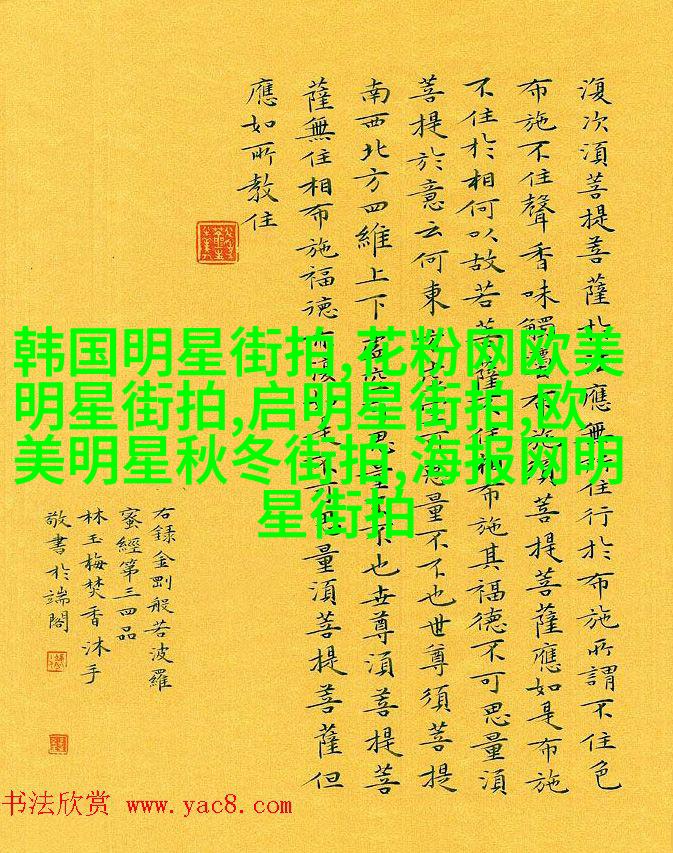 復次湏菩提菩薩於法應無所住行於布施所謂不住色
布施不住聲香味觸法布施湏菩提菩薩應如是布施
不住於相何以故若菩薩不住相布施其福德不可思量湏
菩提於意云何東方虛空可思量不不也世尊須菩提
南西北方四維上下虛空可思量不不也世尊湏菩提菩
薩無住相布施福德亦復如是不可思量湏菩提菩薩但
應如所教住
右錄金剛般若波羅
蜜經第三四品
林玉梅焚香沐手
敬書於端閣
韩国明星街拍,花粉网欧美
明星街拍,启明星街拍,欧
美明星秋冬街拍,海报网明
星街拍
书法欣赏 www.yac8.com